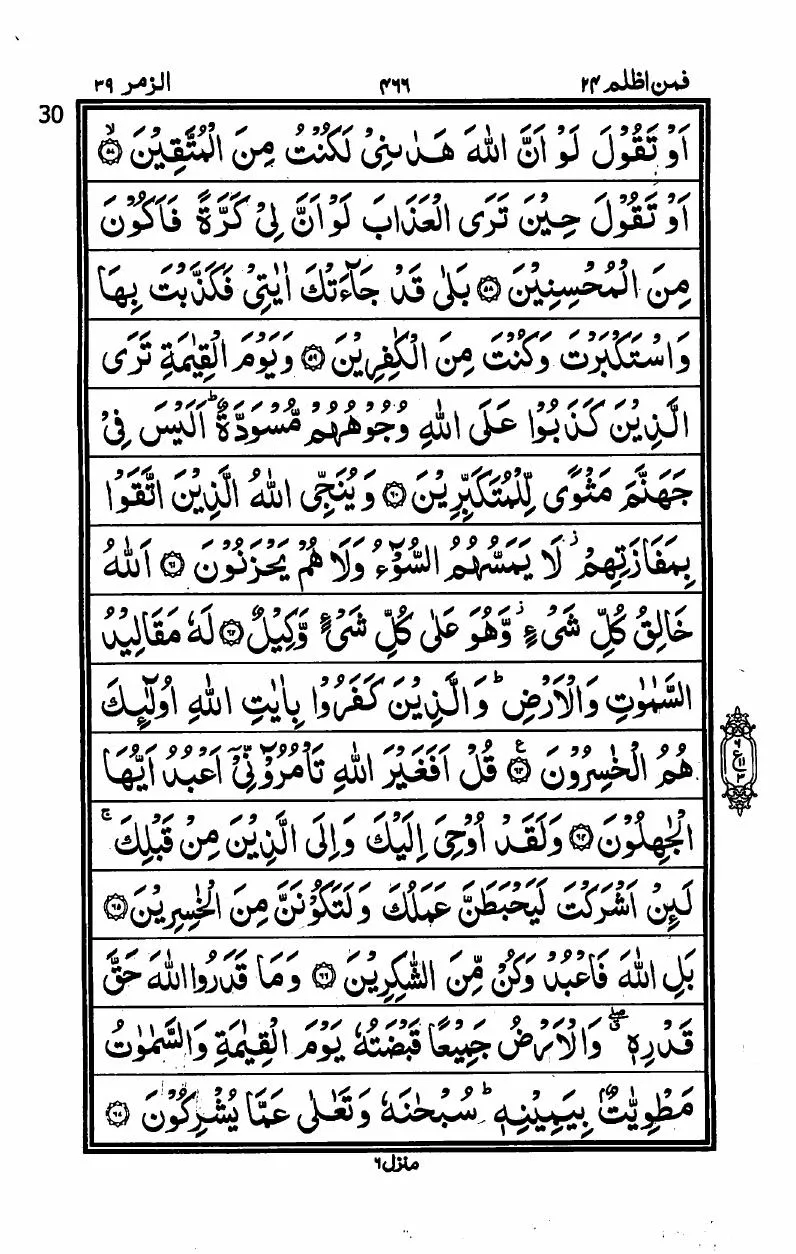 فمن اظلم ۲۴ ۴۶۶ الزمر ۳۹
30
اَوۡ تَقُوۡلَ لَوۡ اَنَّ اللّٰهَ هَدٰٮنِىۡ لَكُنۡتُ مِنَ الۡمُتَّقِيۡنَۙ‏ ﴿۵۷﴾
اَوۡ تَقُوۡلَ حِيۡنَ تَرَى الۡعَذَابَ لَوۡ اَنَّ لِىۡ كَرَّةً فَاَكُوۡنَ
مِنَ الۡمُحۡسِنِيۡنَ‏ ﴿۵۸﴾ بَلٰى قَدۡ جَآءَتۡكَ اٰيٰتِىۡ فَكَذَّبۡتَ بِهَا
وَاسۡتَكۡبَرۡتَ وَكُنۡتَ مِنَ الۡكٰفِرِيۡنَ‏ ﴿۵۹﴾ وَيَوۡمَ الۡقِيٰمَةِ تَرَى
الَّذِيۡنَ كَذَبُوۡا عَلَى اللّٰهِ وُجُوۡهُهُمۡ مُّسۡوَدَّةٌ‌ ؕ اَلَيۡسَ فِىۡ
جَهَنَّمَ مَثۡوًى لِّلۡمُتَكَبِّرِيۡنَ‏ ﴿۶۰﴾ وَيُنَجِّى اللّٰهُ الَّذِيۡنَ اتَّقَوۡا
بِمَفَازَتِهِمۡ لَا يَمَسُّهُمُ السُّوۡٓءُ وَلَا هُمۡ يَحۡزَنُوۡنَ‏ ﴿۶۱﴾ اَللّٰهُ
خَالِقُ كُلِّ شَىۡءٍ‌ وَّ هُوَ عَلٰى كُلِّ شَىۡءٍ وَّكِيۡلٌ‏ ﴿۶۲﴾ لَهٗ مَقَالِيۡدُ
السَّمٰوٰتِ وَالۡاَرۡضِ‌ؕ وَالَّذِيۡنَ كَفَرُوۡا بِاٰيٰتِ اللّٰهِ اُولٰٓٮِٕكَ
هُمُ الۡخٰسِرُوۡنَ‏ ﴿۶۳﴾ قُلۡ اَفَغَيۡرَ اللّٰهِ تَاۡمُرُوۡٓنِّىۡٓ اَعۡبُدُ اَيُّهَا
الۡجٰهِلُوۡنَ‏ ﴿۶۴﴾ وَلَقَدۡ اُوۡحِىَ اِلَيۡكَ وَاِلَى الَّذِيۡنَ مِنۡ قَبۡلِكَ‌ۚ
لَٮِٕنۡ اَشۡرَكۡتَ لَيَحۡبَطَنَّ عَمَلُكَ وَلَتَكُوۡنَنَّ مِنَ الۡخٰسِرِيۡنَ‏ ﴿۶۵﴾
بَلِ اللّٰهَ فَاعۡبُدۡ وَكُنۡ مِّنَ الشّٰكِرِيۡنَ‏ ﴿۶۶﴾ وَمَا قَدَرُوا اللّٰهَ حَقَّ
قَدۡرِهٖ ۖ وَالۡاَرۡضُ جَمِيۡعًا قَبۡضَتُهٗ يَوۡمَ الۡقِيٰمَةِ وَالسَّمٰوٰتُ
مَطۡوِيّٰتٌۢ بِيَمِيۡنِهٖ‌ ؕ سُبۡحٰنَهٗ وَتَعٰلٰى عَمَّا يُشۡرِكُوۡنَ‏ ﴿۶۷﴾
منزل ۶